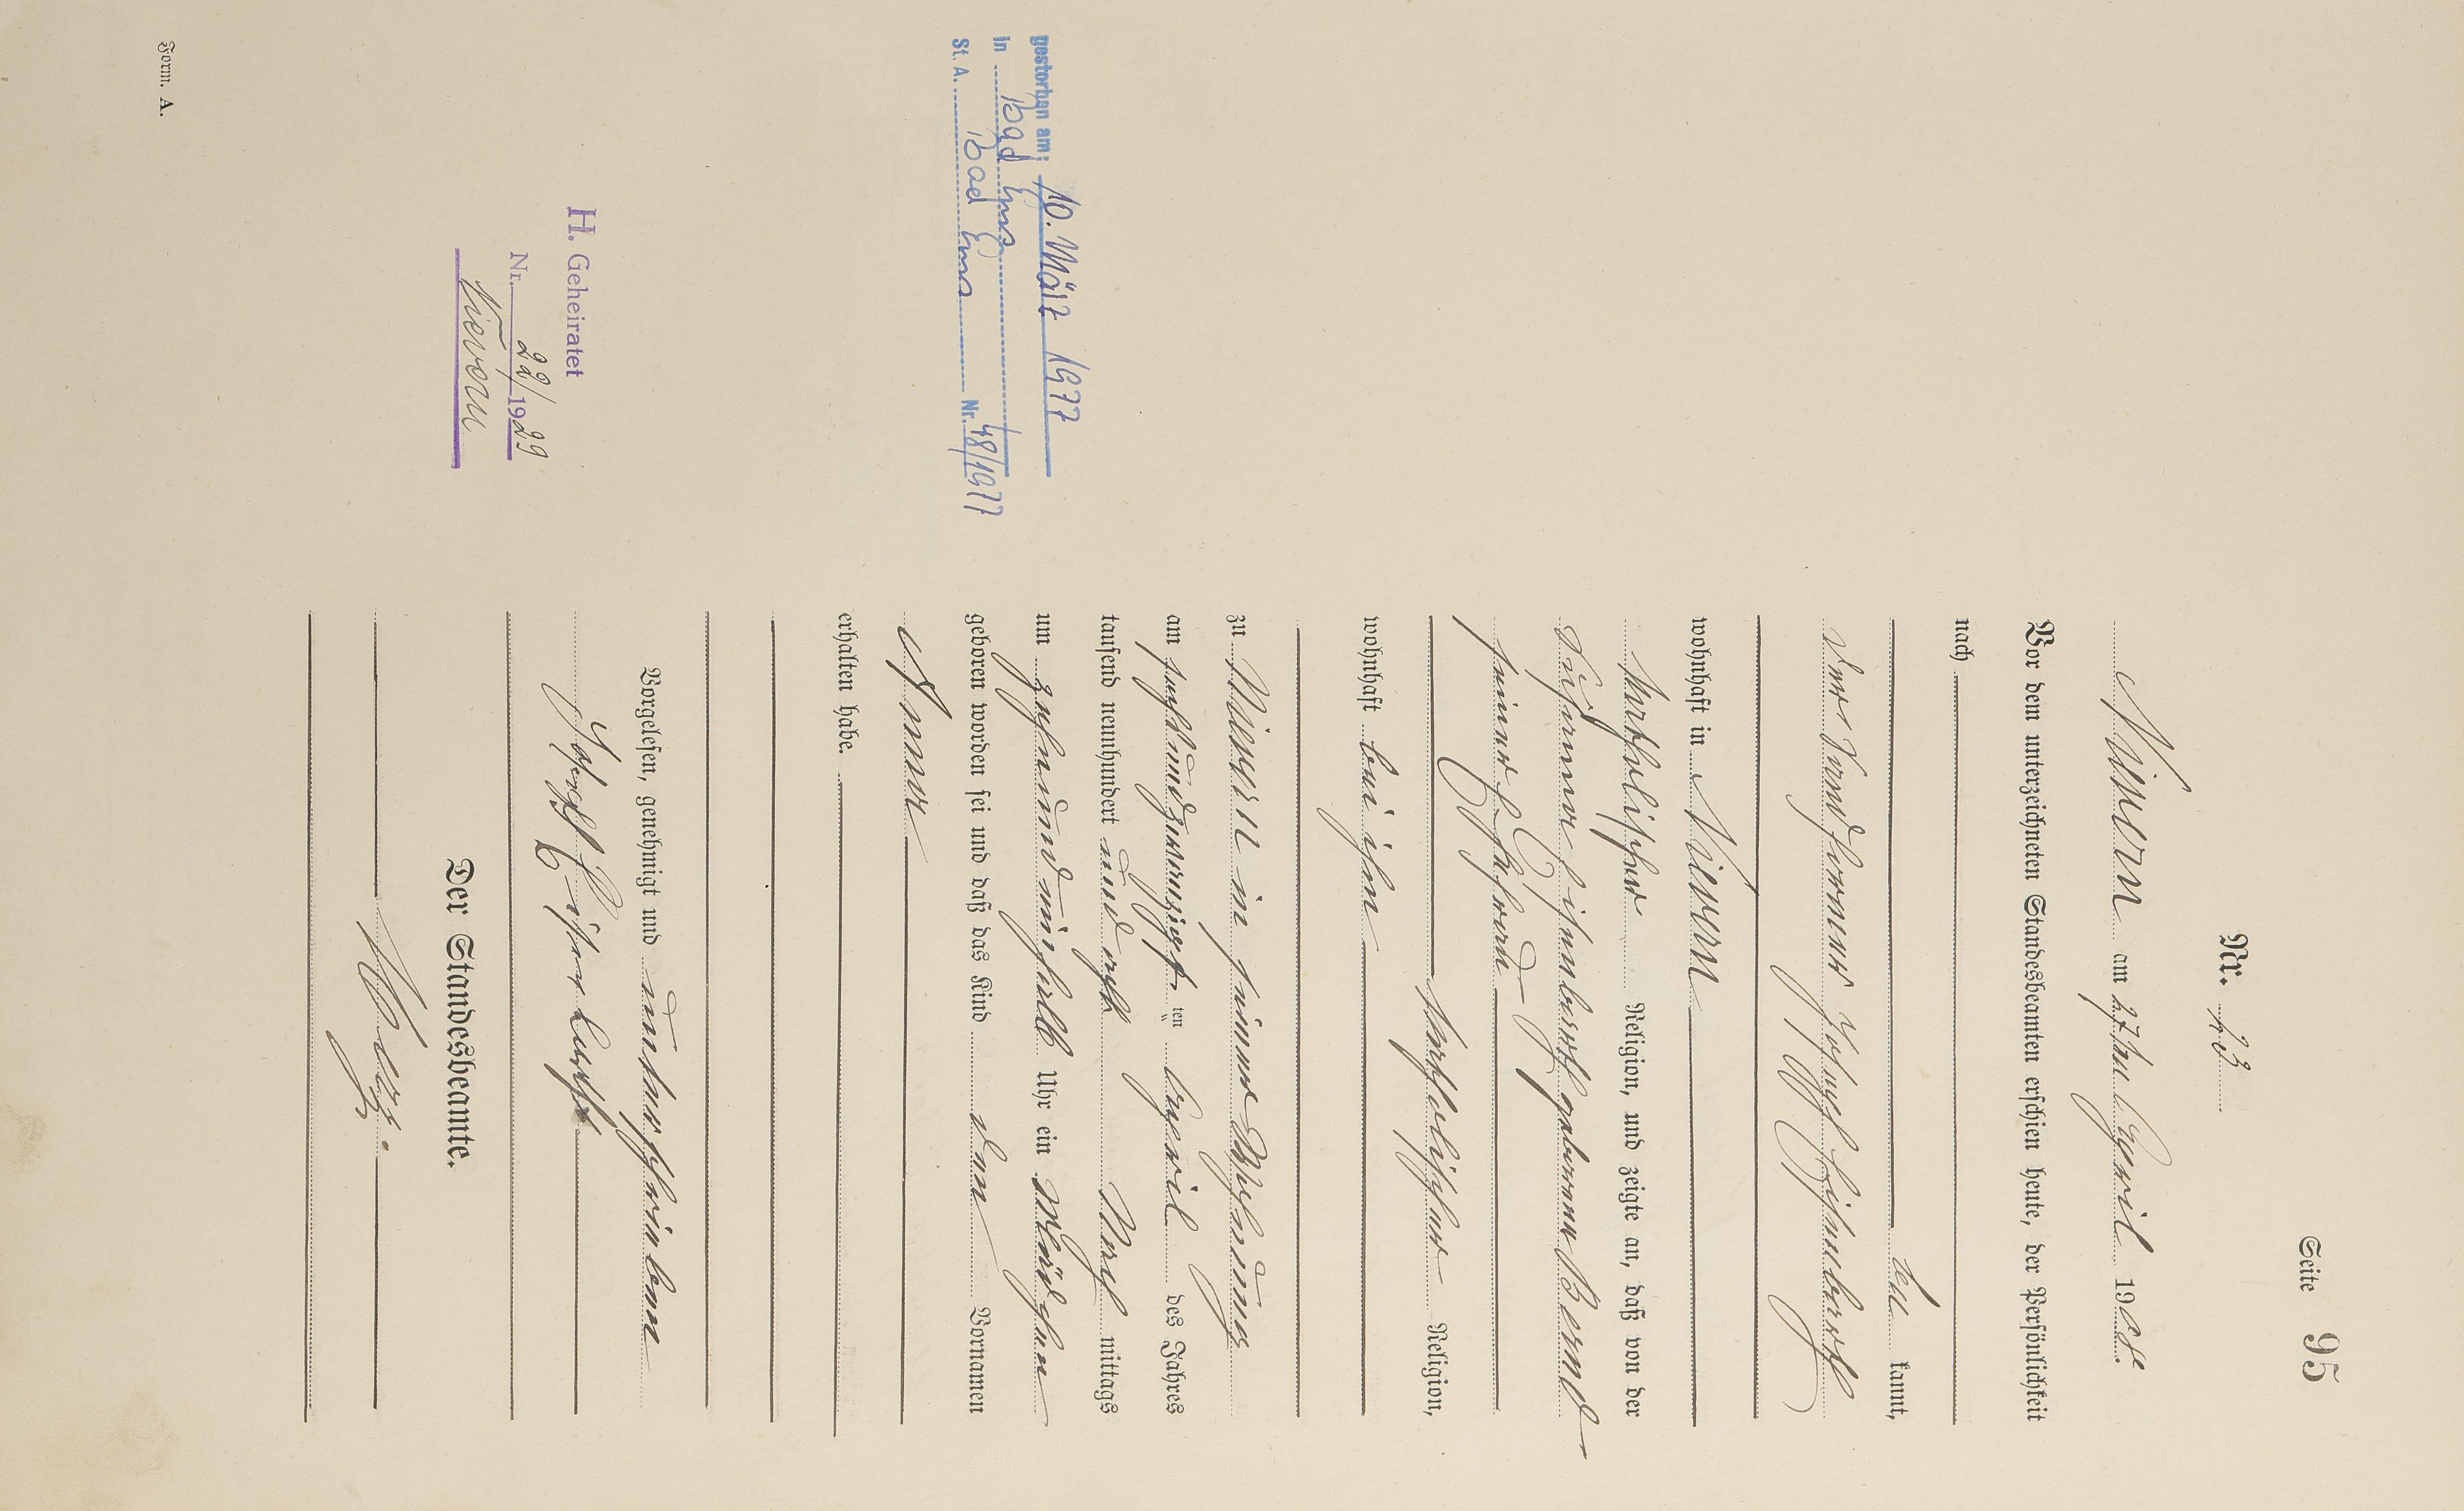 Seite 95
Nr. 13
Nievern am 27ten April 1908.
Vor dem unterzeichneten Standesbeamten erschien heute, der Persönlichkeit
nach
be kannt,
der Sandformer Joseph Eisenbarth
wohnhaft in Nievern
katholischer Religion, und zeigte an, daß von der
Eisenbarth geborenen Bernd
seiner Ehefrau
katholischer Religion,
wohnhaft bei ihm
zu Nievern in seiner Wohnung
am sechsundzwanzigst ten April des Jahres
tausend neunhundert und acht Nach mittags
um zehn und einhalb Uhr ein Mädchen
geboren worden sei und daß das Kind den Vornamen
Anna
erhalten habe.
Vorgelesen, genehmigt und unterschrieben
Joseph Eisenbarth
Der Standesbeamte.
gestorben am: 10. März 1977
in Bad Ems
St. A. Bad Ems Nr. 48/1977
H. Geheiratet
Nr. 22/1929
Nievern
Form. A.